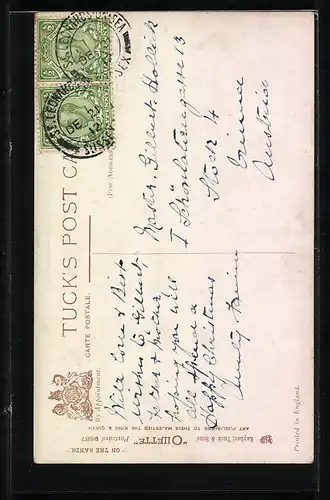 TUCK'S POST CARD
CARTE POSTALE.
By Appointment.
(For Address
With Love & Best
wishes to Gilbert
Hoping you will
all spend a
Happy Christmas
Master. Gilbert. Hollick
I Schönlaterngasse 13
Stock 4
Vienna
Austria
ST LEONARDS ON SEA
SUSSEX
DE 21
12
"ON THE SANDS."
"OILETTE" Postcard
Raphael Tuck & Sons'
ART PUBLISHERS TO THEIR MAJESTIES THE KING & QUEEN
Printed in England.